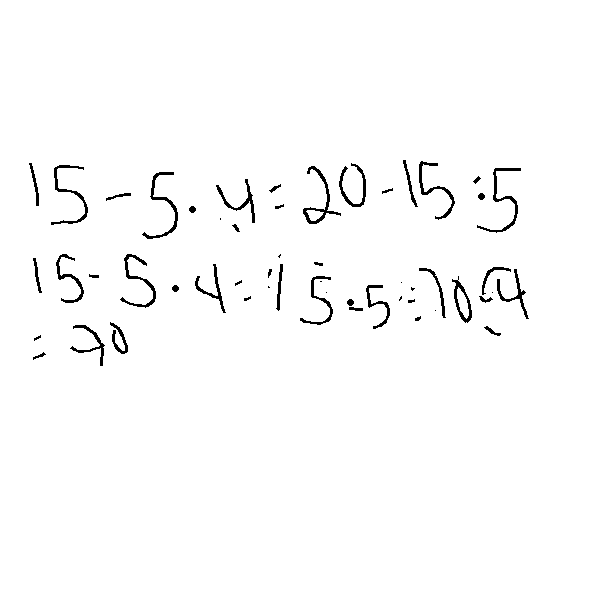 15 - 5 · 4 = 20 - 15 : 5
15 - 5 · 4 = 15 · 5 = 10 · 4
= 70